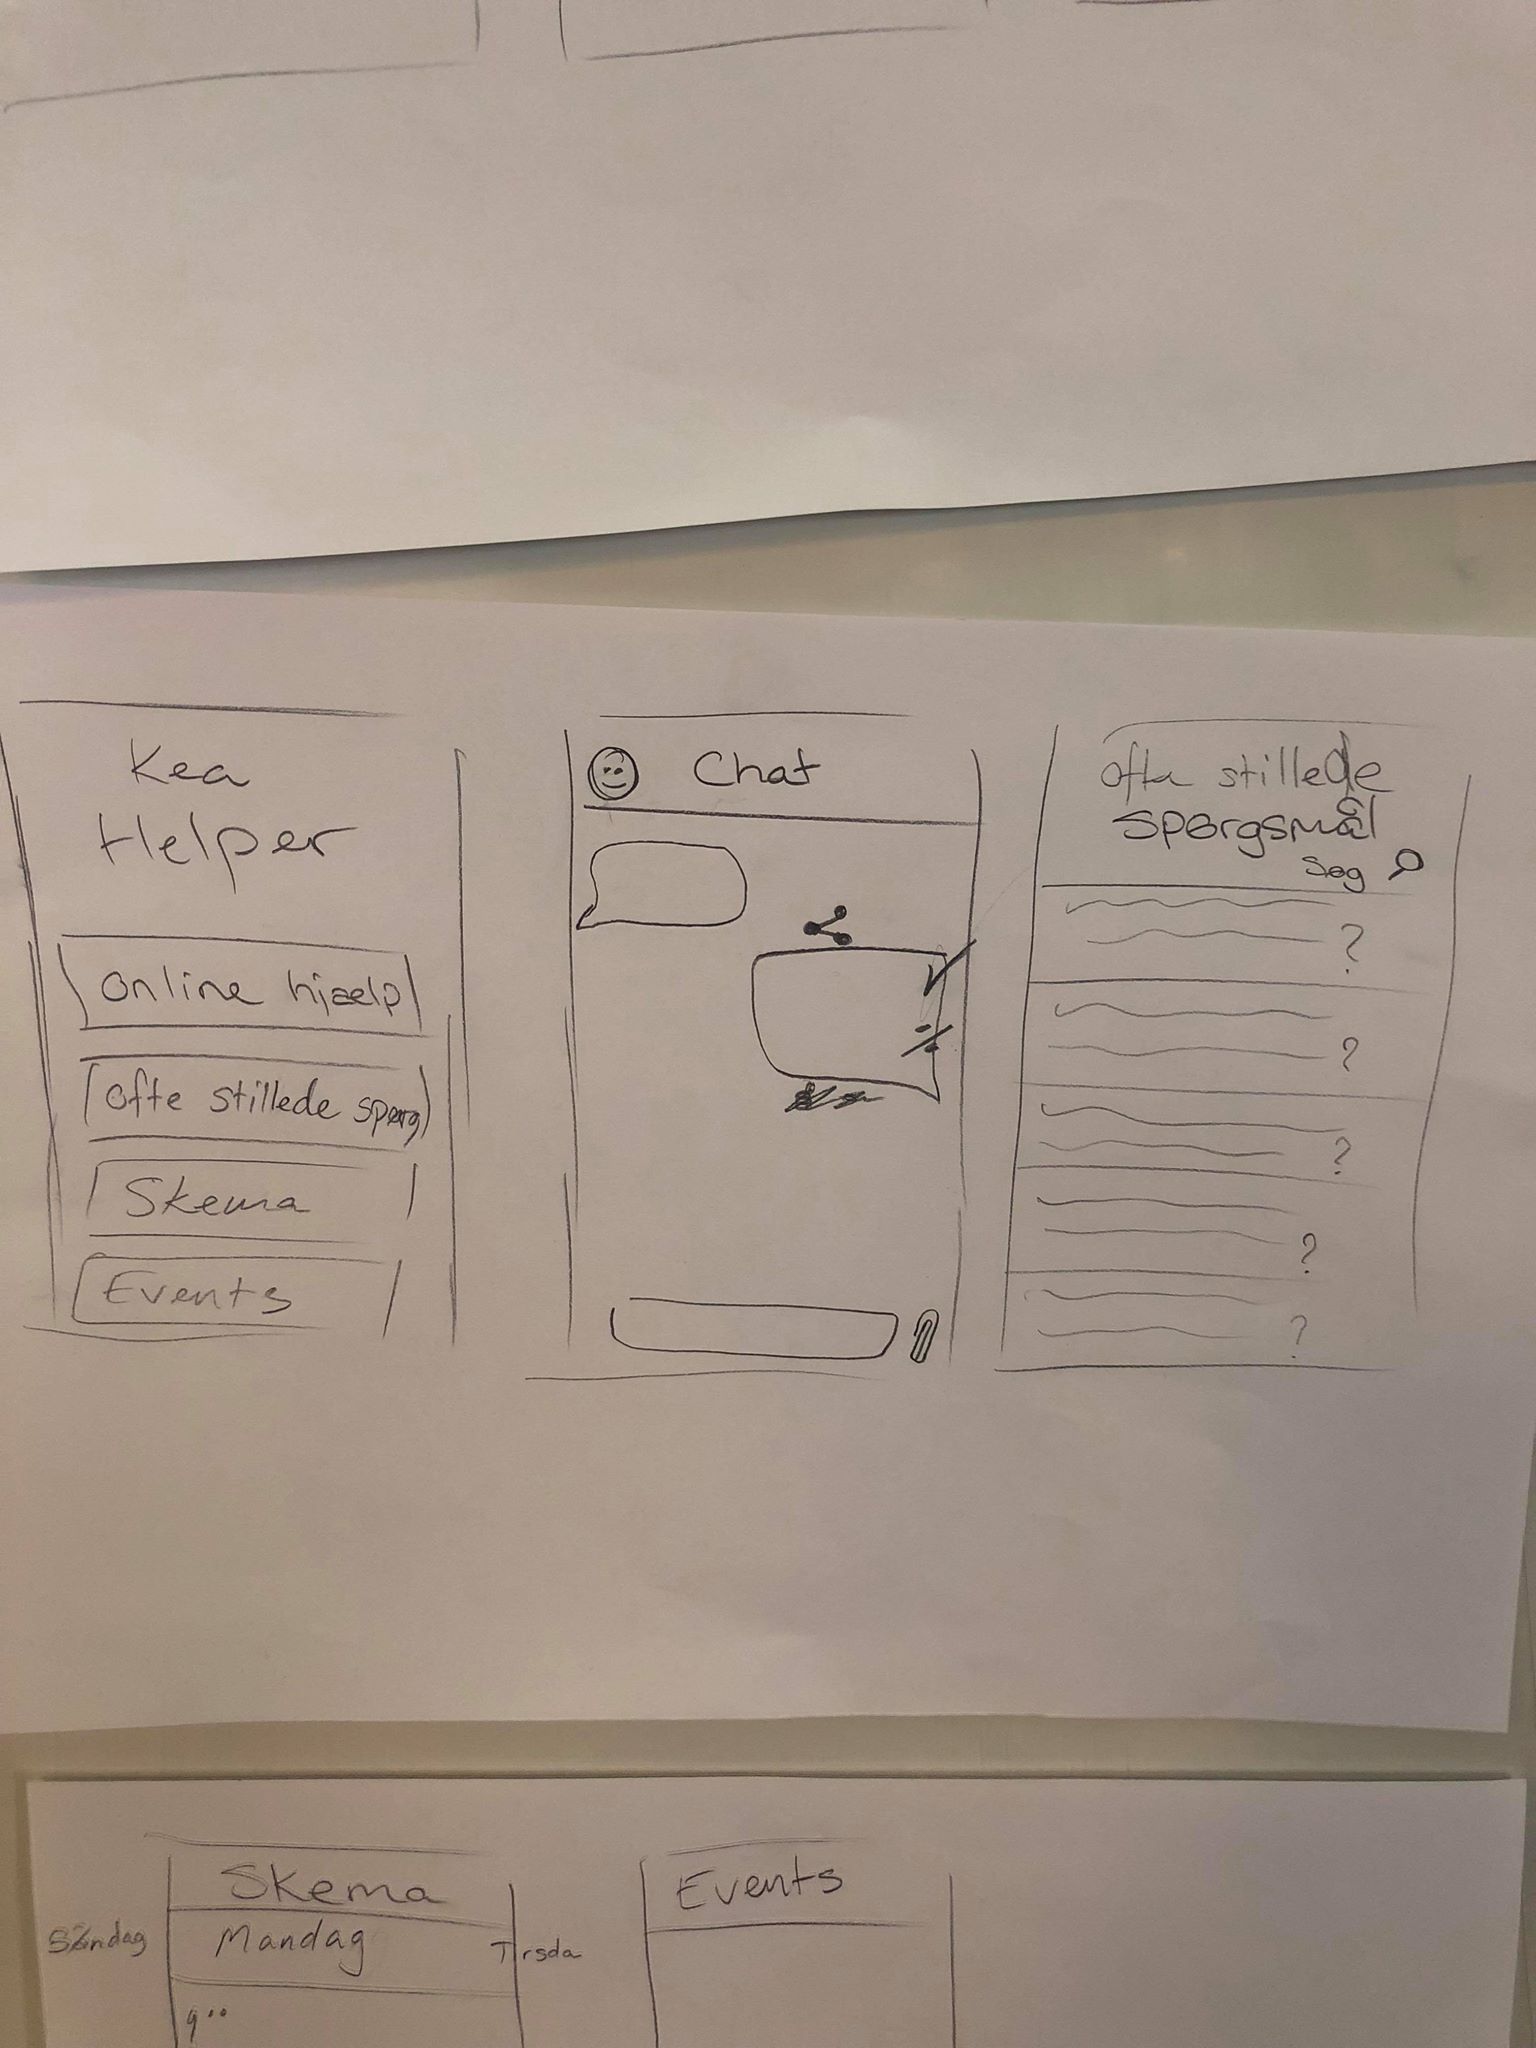 Kea
Helper
Online hjælp
Ofte stillede spørg
Skema
Events
Chat
Ofte stillede
spørgsmål
Søg
?
?
?
?
?
Skema
Søndag
Mandag
Tirsda
9⁰⁰
Events